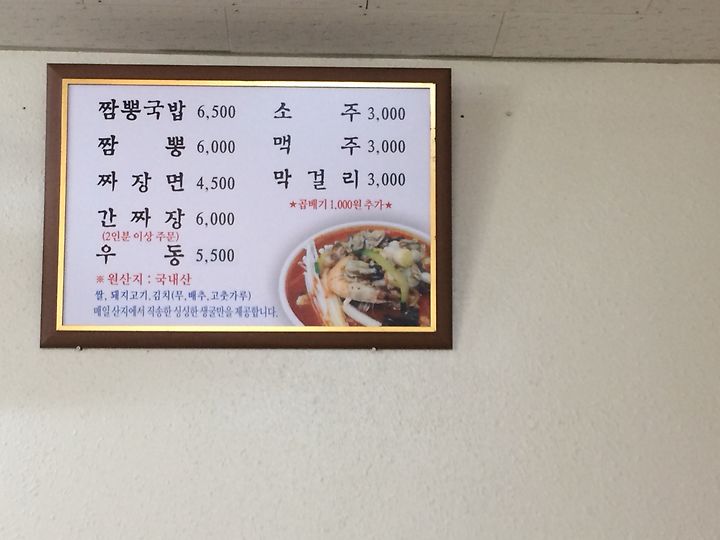 짬뽕국밥 6,500
짬 뽕 6,000
짜 장 면 4,500
간 짜 장 6,000
(2인분 이상 주문)
우 동 5,500
※ 원산지 : 국내산
쌀, 돼지고기, 김치(무, 배추, 고춧가루)
매일 산지에서 직송한 싱싱한 생굴만을 제공합니다.
소 주 3,000
맥 주 3,000
막 걸 리 3,000
★곱배기 1,000원 추가★